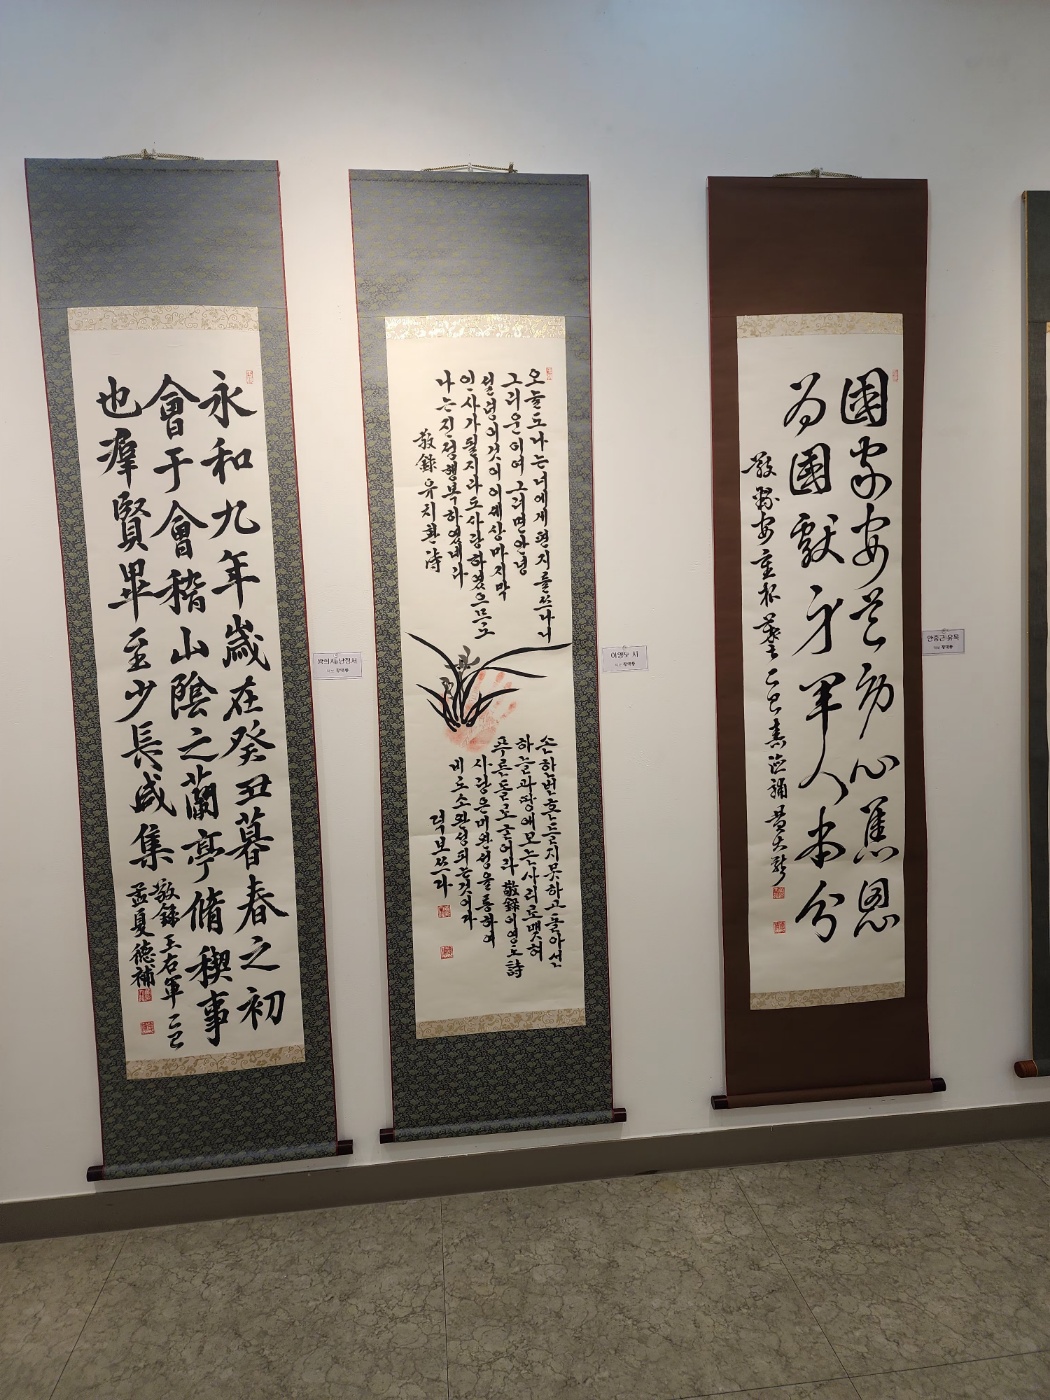 永和九年歲在癸丑暮春之初
會于會稽山陰之蘭亭脩禊事
也羣賢畢至少長咸集
敬錄王右軍 乙巳
孟夏 德補
왕희지 난정서
오늘도 나는 너에게 편지를 쓰나니
그리운 이여 그러면 안녕
설령 이것이 이 세상 마지막
인사가 될지라도 사랑하였으므로
나는 진정 행복하였네라
敬錄 유치환 詩
손 한번 흔들지 못하고 돌아선
하늘과 땅
애모는 사리로 맺혀
푸른 돌로 굳어라 敬錄 이영도 詩
사랑은 미완성을 통하여
비로소 완성되는 것이다
덕보 쓰다
이영도 시
國家安危勞心焦思
為國獻身軍人本分
敬錄安重根
乙巳
안중근 유묵